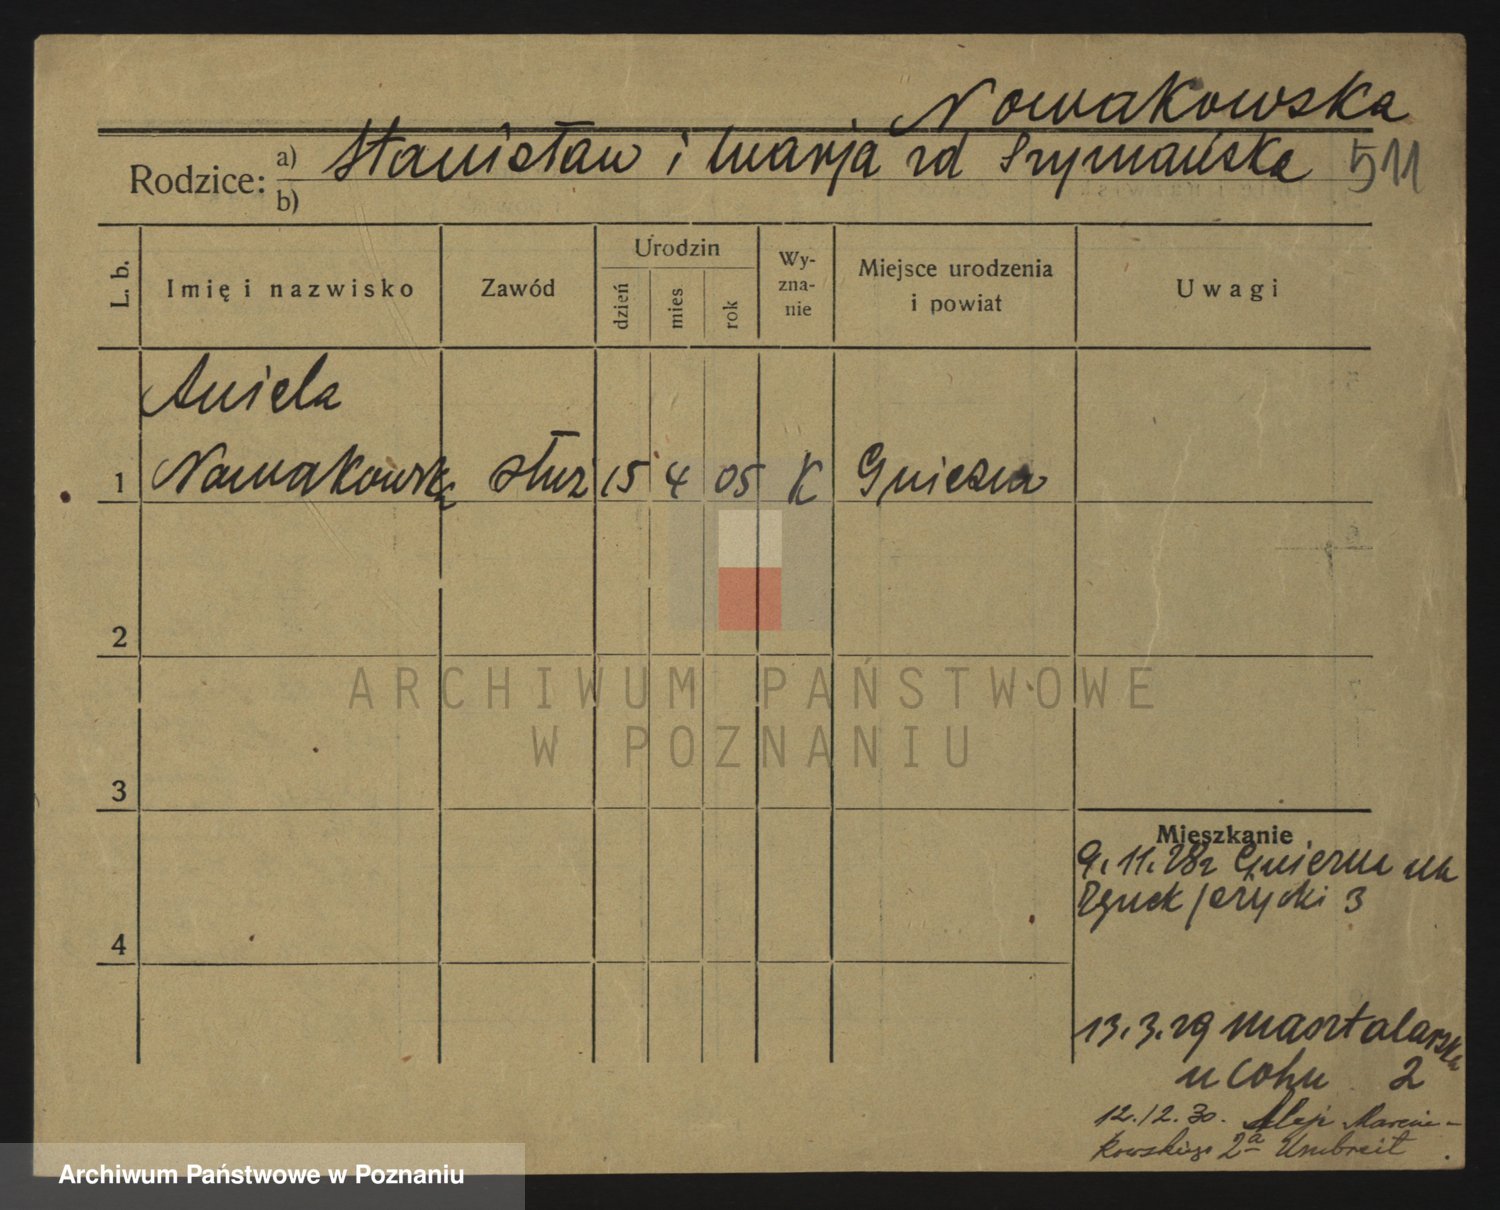 Nowakowska
Rodzice: a) Stanisław i Marja zd Szymańska 511
b)
L. b.
Imię i nazwisko
Zawód
Urodzin
dzień
mies
rok
Wy-
zna-
nie
Miejsce urodzenia
i powiat
Uwagi
Aniela
1 Nowakowska służ 15 4 05 K Gniezno
2
ARCHIWUM PAŃSTWOWE
W POZNANIU
3
Mieszkanie
9.11.28r Gniezna na
Rynek Jeżycki 3
4
13.3.29 Masztalarska
u Cohn 2
12.12.30. Aleje Marcin-
kowskiego 2a Umbreit
Archiwum Państwowe w Poznaniu